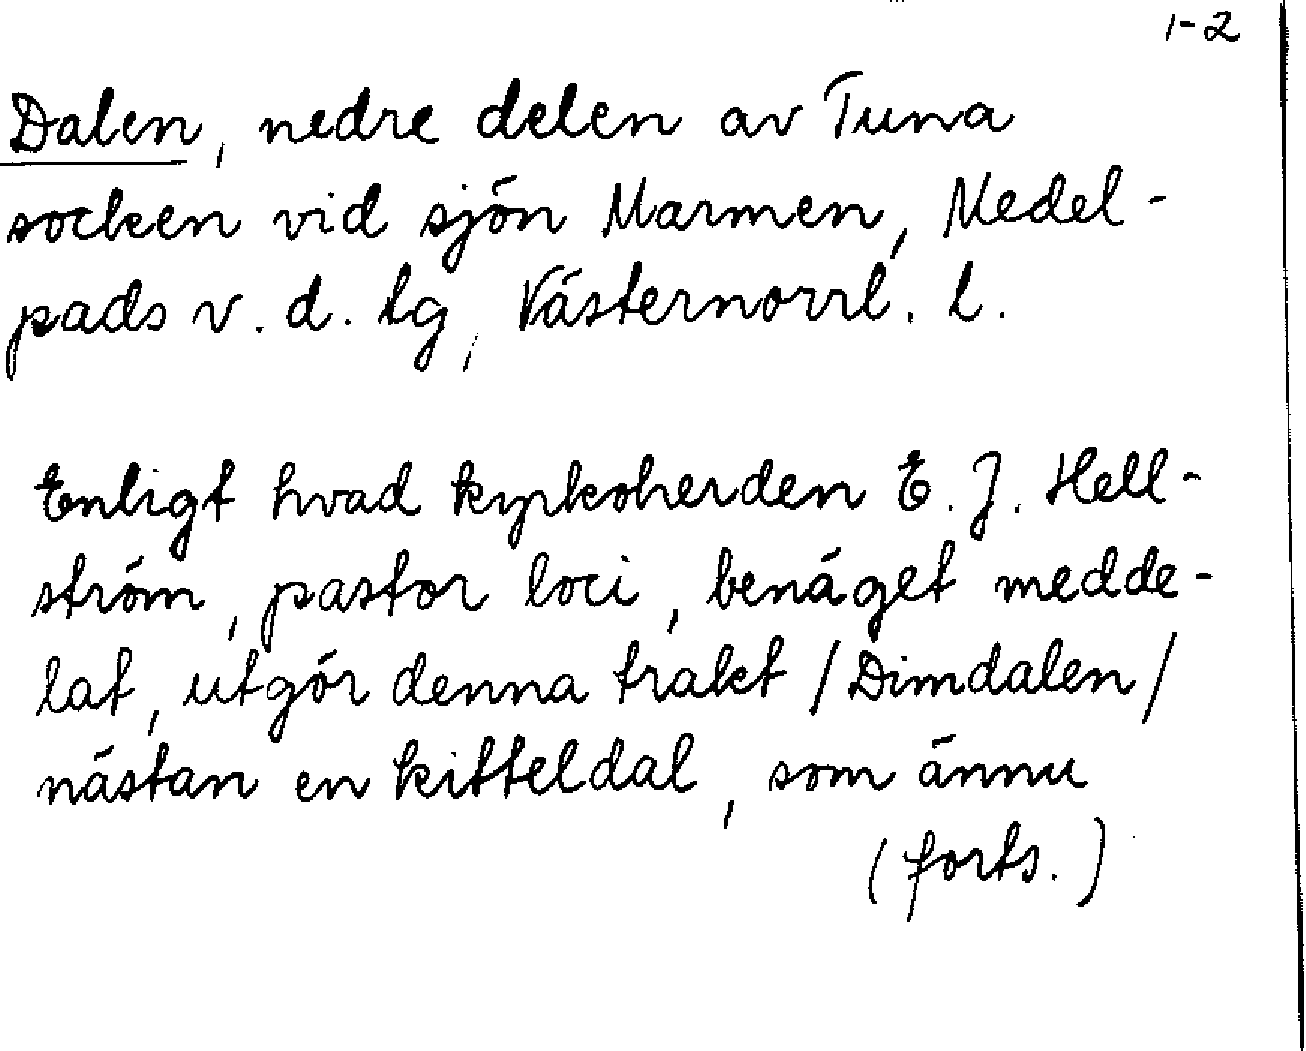 1-2
Dalen, nedre delen av Tuna
socken vid sjön Marmen, Medel-
pads v. d. lg, Västernorrl. l.
Enligt hvad kyrkoherden E. J. Hell-
ström, pastor loci, benäget medde-
lat, utgör denna trakt /Dimdalen/
nästan en kitteldal, som ännu
(forts.)